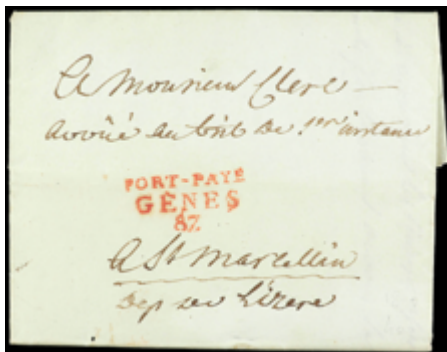 A Monsieur Clerc
avoüé au trib de 1ere instance
PORT-PAYÉ
GÊNES
87
A St Marcellin
Dep de L'izere